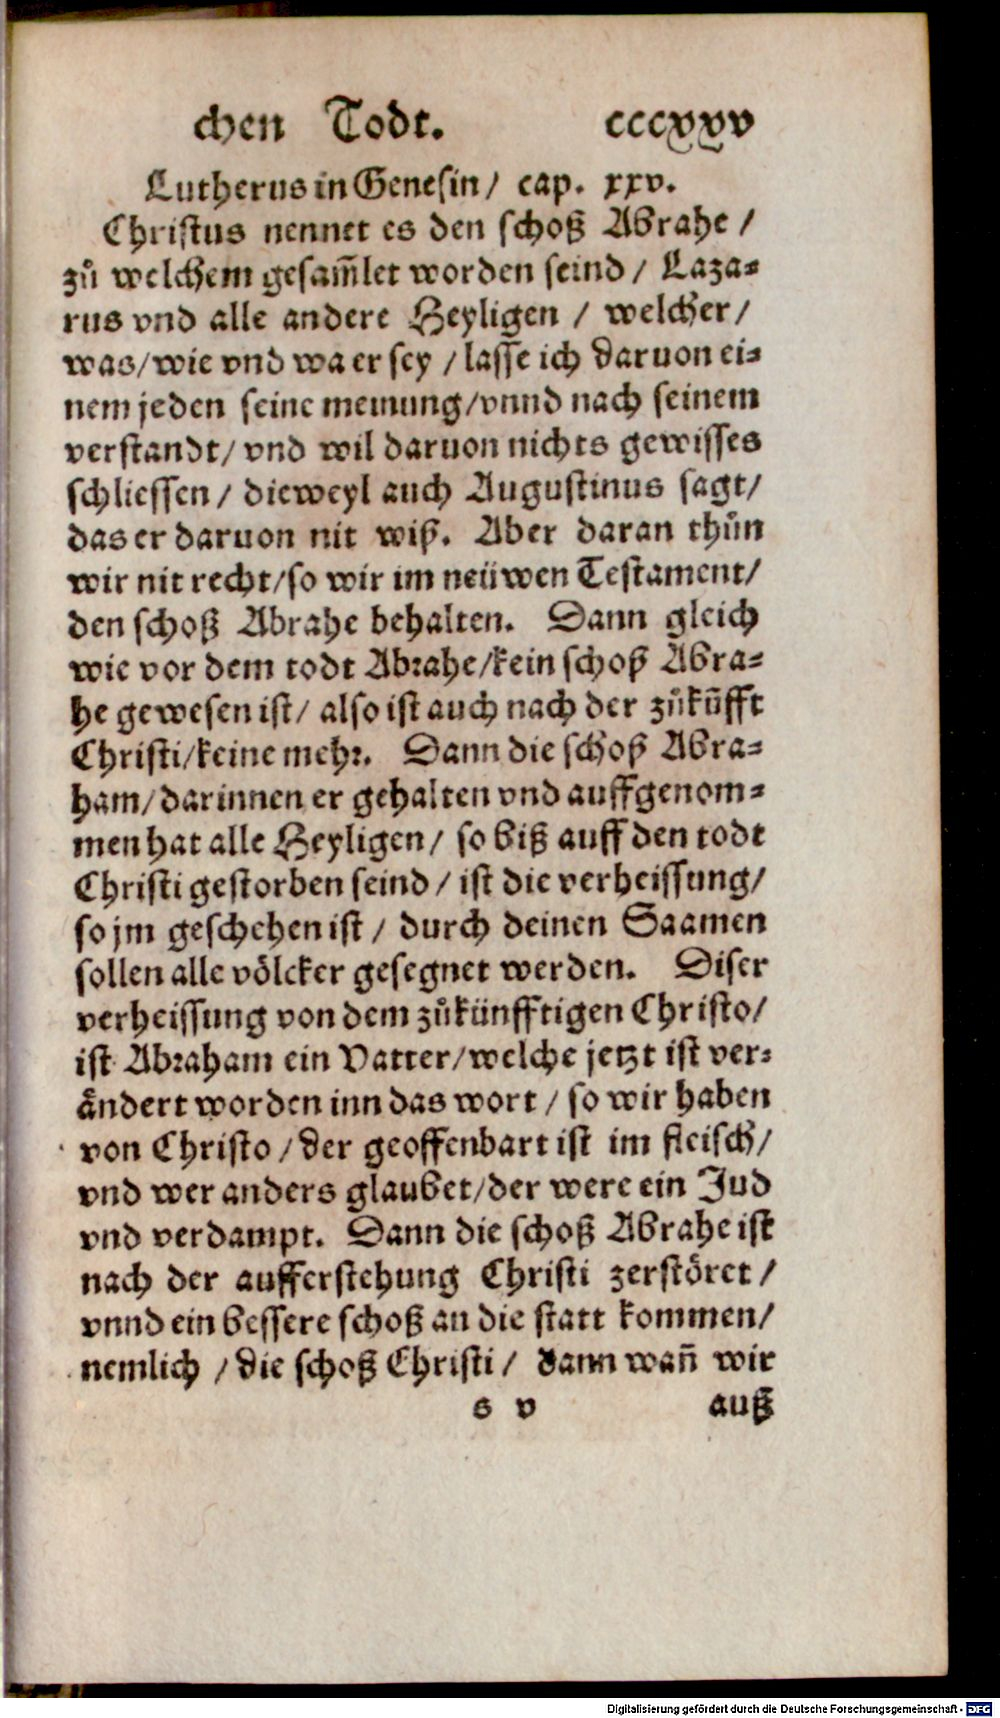 chen Todt. cccxxv
Lutherus in Genesin / cap. xxv.
Christus nennet es den schoß Abrahe /
zů welchem gesam̃let worden seind / Laza-
rus vnd alle andere Heyligen / welcher /
was / wie vnd wa er sey / lasse ich daruon ei-
nem jeden seine meinung / vnnd nach seinem
verstandt / vnd wil daruon nichts gewisses
schliessen / dieweyl auch Augustinus sagt /
das er daruon nit wiß. Aber daran thůn
wir nit recht / so wir im neüwen Testament /
den schoß Abrahe behalten. Dann gleich
wie vor dem todt Abrahe / kein schoß Abra-
he gewesen ist / also ist auch nach der zůkũfft
Christi / keine mehr. Dann die schoß Abra-
ham / darinnen er gehalten vnd auffgenom-
men hat alle Heyligen / so biß auff den todt
Christi gestorben seind / ist die verheissung /
so jm geschehen ist / durch deinen Saamen
sollen alle völcker gesegnet werden. Diser
verheissung von dem zůkünfftigen Christo /
ist Abraham ein Vatter / welche jetzt ist ver-
ändert worden inn das wort / so wir haben
von Christo / der geoffenbart ist im fleisch /
vnd wer anders glaubet / der were ein Jud
vnd verdampt. Dann die schoß Abrahe ist
nach der aufferstehung Christi zerstöret /
vnnd ein bessere schoß an die statt kommen /
nemlich / die schoß Christi / dann wañ wir
s v auß
Digitalisierung gefördert durch die Deutsche Forschungsgemeinschaft - DFG